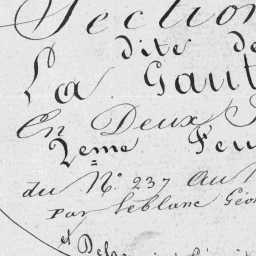 Section
dite de
La Gaut
En Deux F
2eme Feu
du N° 237 au N
par Leblanc Géo
et Des